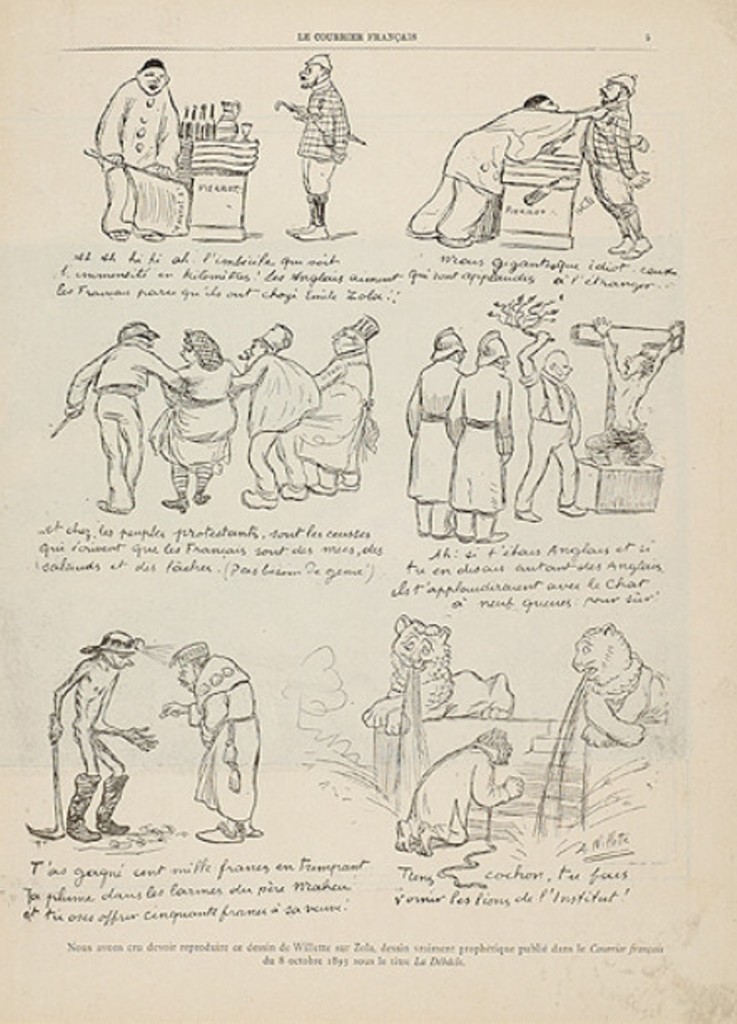 LE COURRIER FRANÇAIS
5
PIERROT
PIERROT
Ah Ah hi hi ah l'imbécile qui voit
l'immensité en kilomètres! les Anglais aiment
les Français parce qu'ils ont choyé Emile Zola!!
Mais gigantesque idiot, ceux
qui sont applaudis à l'étranger..
et chez les peuples protestants, sont les
qui écrivent que les Français sont des mecs, des
salauds et des lâches. (Pas besoin de génie)
Ah! si t'étais Anglais et si
tu en disais autant des Anglais
ils t'applaudiraient avec le Chat
à neuf queues pour sûr!
T'as gagné cent mille francs en trempant
ta plume dans les larmes du père Maheu
et tu oses offrir cinquante francs à sa veuve!
Tiens cochon, tu fais
vomir les lions de l'Institut!
A. Willette
Nous avons cru devoir reproduire ce dessin de Willette sur Zola, dessin vraiment prophétique publié dans le Courrier français
du 8 octobre 1893 sous le titre La Débâcle.